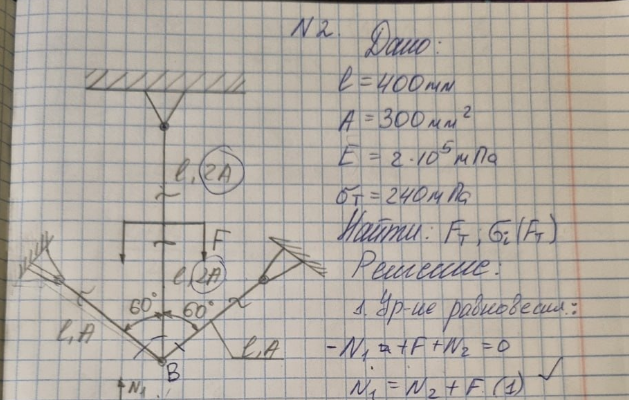 N2.
Дано:
l = 400мм
A = 300мм²
E = 2·10⁵ мПа
σт = 240мПа
Найти: Fт, σi(Fт)
Решение:
1. Ур-ие равновесия:
-N₁ + F + N₂ = 0
N₁ = N₂ + F (1) ✓
l, 2A
F
l, 2A
60° 60°
l, A
l, A
B
N₁